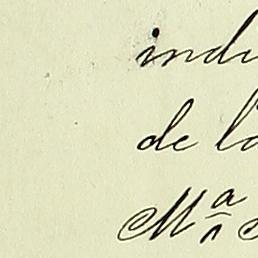 indi
de la
Mª